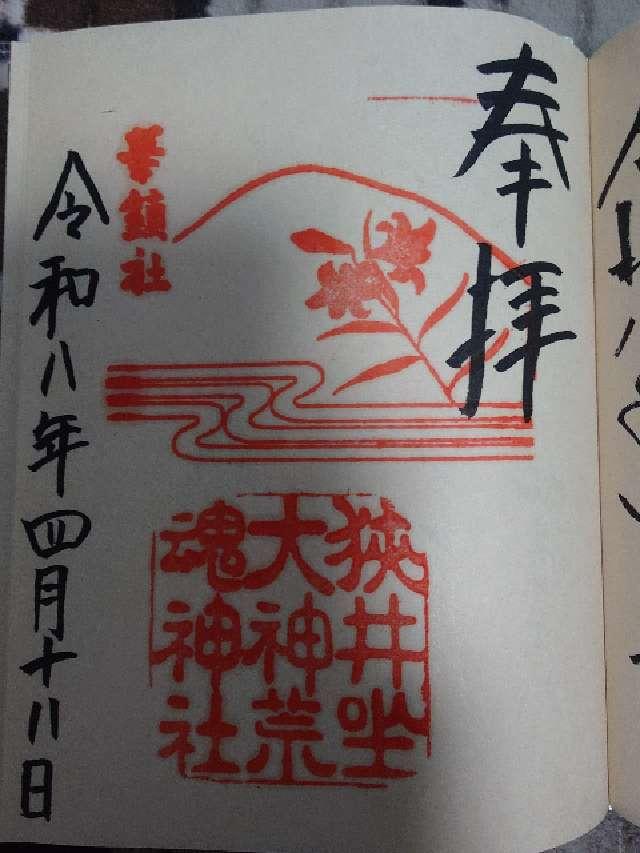 奉拝
華鎮社
狭井坐
大神荒
魂神社
令和八年四月十八日